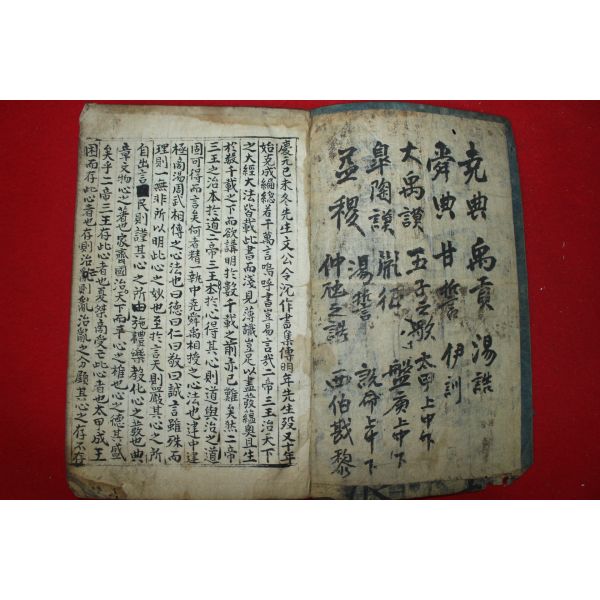 堯典 禹貢 湯誥
舜典 甘誓 伊訓
大禹謨 五子之歌 太甲上中下
皐陶謨 胤征 盤庚上中下
益稷 湯誓 說命上中下
仲虺之誥 西伯戡黎
慶元己未冬先生文公令沈作書集傳明年先生歿又十年
始克成編總若千萬言嗚呼書豈易言哉二帝三王治天下
之大經大法皆載此書而淺見薄識豈足以盡發蘊奧且生
於數千載之下而欲講明於數千載之前亦已難矣然二帝
三王之治本於道二帝三王本於心得其心則道與治之道
固可得而言矣何者精一執中堯舜禹相授之心法也建中建
極商湯周武相傳之心法也曰德曰仁曰敬曰誠言雖殊而
理則一無非所以明此心之妙也至於言天則嚴其心之所
自出言民則謹其心之所由施禮樂敎化心之發也典
章文物心之著也家齊國治天下而平心之推也心之德其盛
矣乎二帝三王存此心者也夏桀商受亡此心者也太甲成王
困而存此心者也存則治亡則亂治亂之分顧其心之存不存